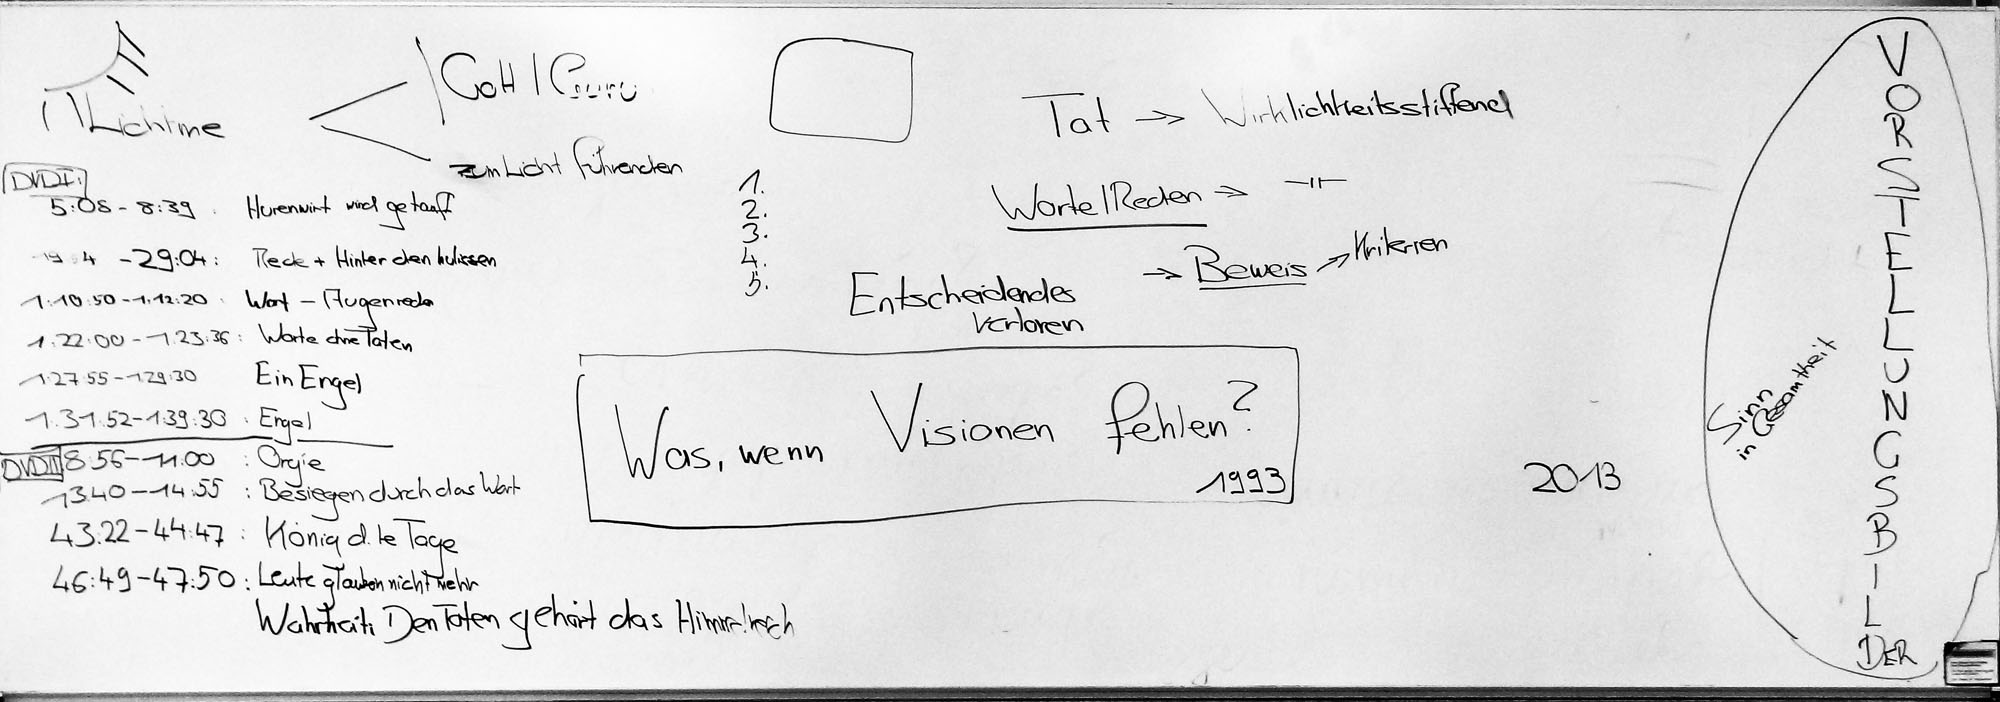 Gott/Guru
zum Licht führenden
DVD I:
5:08-8:39 Hurenwirt wird getauft
-29:04: Rede + Hinter den Kulissen
1:10:50-1:12:20 Wort -
1:22:00-1:23:36: Worte ohne Taten
1:27:55-1:29:30 Ein Engel
1:31:52-1:39:30 Engel
DVD II
8:56-11:00 : Orgie
13:40-14:55 : Besiegen durch das Wort
43:22-44:47 : König Tage
46:49-47:50: Leute glauben nicht mehr
Wahrheit: Den Taten gehört das Himmelreich
1.
2.
3.
4.
5.
Tat → Wirklichkeitsstiftend
Worte/Reden → -||-
→ Beweis → Kriterien
Entscheidendes
verloren
Was, wenn Visionen fehlen?
1993
2013
Sinn
in Gesamtheit
VORSTELLUNGSBILDER